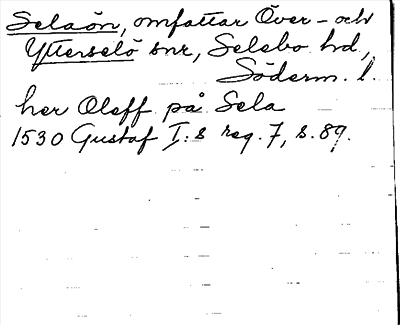 Selaön, omfattar Över- och
Ytterselö snr, Selebo hd,
Söderm. l.
her Oleff på Sela
1530 Gustaf I:s reg. 7, s. 89.